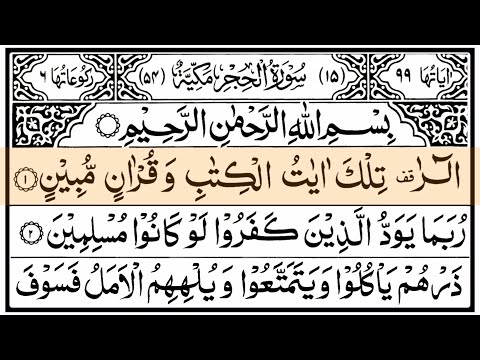 اٰیَاتُهَا ۹۹ (۱۵) سُوْرَةُ الْحِجْرِ مَكِّيَّةٌ (۵۴) رُكُوْعَاتُهَا ۶
بِسْمِ اللّٰهِ الرَّحْمٰنِ الرَّحِيْمِ
الٓرٰ قف تِلْكَ اٰيٰتُ الْكِتٰبِ وَ قُرْاٰنٍ مُّبِيْنٍ ۱
رُبَمَا يَوَدُّ الَّذِيْنَ كَفَرُوْا لَوْ كَانُوْا مُسْلِمِيْنَ ۲
ذَرْهُمْ يَاْكُلُوْا وَ يَتَمَتَّعُوْا وَ يُلْهِهِمُ الْاَمَلُ فَسَوْفَ